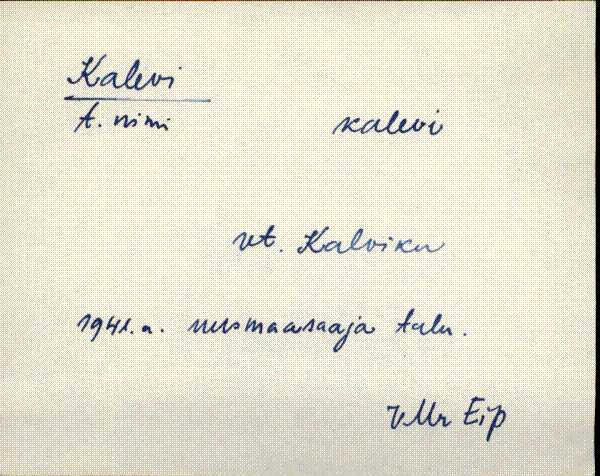 Kalevi
t. nimi kalevi
vt. Kalviku
1941.a. uusmaasaaja talu.
VMr Eip